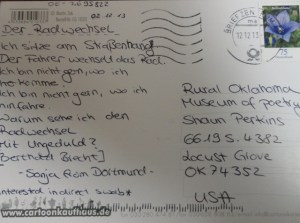 02.12.13
Der Radwechsel
Ich sitze am Straßenhang.
Der Fahrer wechselt das Rad.
Ich bin nicht gern, wo ich
herkomme.
Ich bin nicht gern, wo ich
hinfahre.
Warum sehe ich den
Radwechsel
Mit Ungeduld?
(Bertholt Brecht)
- Sonja from Dortmund -
www.cartoonkaufhaus.de
BRIEFZENTRUM
12.12.13
75
Rural Oklahoma
Museum of Poetry
Shaun Perkins
66195. 4382
Locust Grove
OK 74352
USA